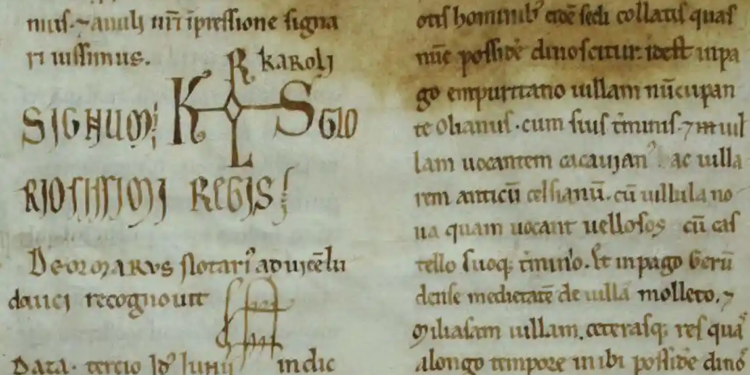 nius. ⁊ anuli nr̄i īpressione signa
ri iussimus.
Signum K R L S Karoli glo
riosissimi regis
Deormarus notari᷒ ad uicē lu
douici recognouit
Data. tercio Id᷒ Iunii indic
otis hominib᷒ eidē sedi collatis quas
nūc possidē dinoscitur. idest in pa
go empuritano uillam nūcupan
te olianus. cum suis tīminis. ⁊ uil
lam uocantem cacauian᷒ ac uilla
rem anticū celsianū. cū uillula no
ua quam uocant uellosos cū cas
tello suoq; tīmino. Et in pago Gerū
dense medietatē de uilla molleto. ⁊
Miliasam uillam. ceterasq; res qua
a longo tempore in ibi possidē dino